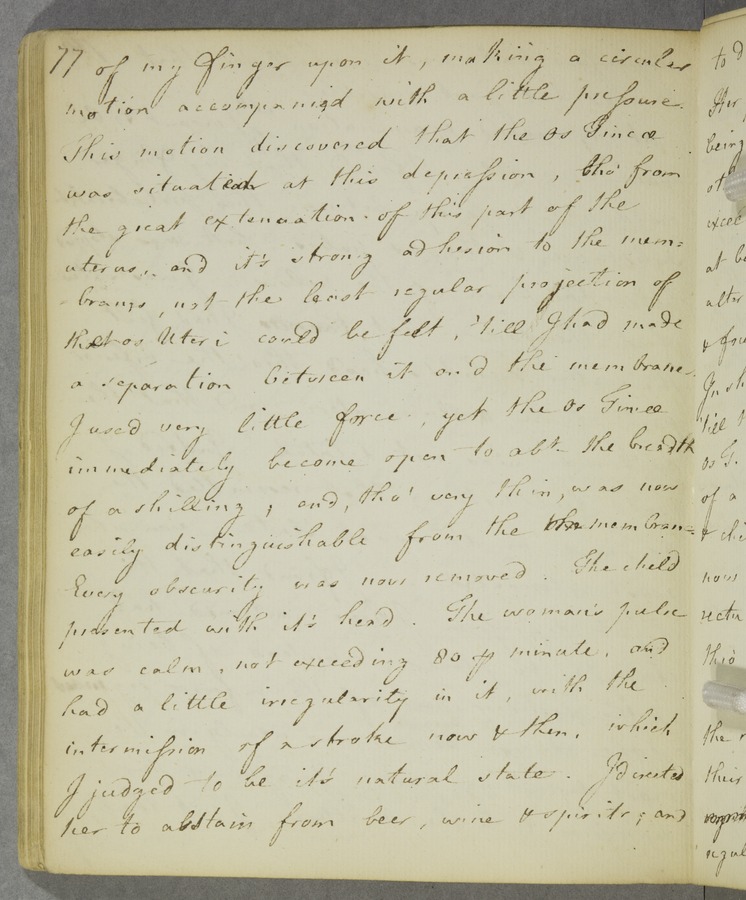 77 of my finger upon it, making a circular
motion accompanied with a little pressure.
This motion discovered that the os Tincæ
was situated at this depression, tho' from
the great extenuation of this part of the
uterus, and it's strong adhesion to the mem=
brans, not the least regular projection of
the os Uteri could be felt, 'till I had made
a separation between it and the membrane.
I used very little force, yet the os Tincæ
immediately became open to abt. the breadth
of a shilling; and, tho' very thin, was now
easily distinguishable from the membran=
Every obscurity was now removed. The child
presented with it's head. The woman's pulse
was calm, not exceeding 80 ⅌ minute, and
had a little irregularity in it, with the
intermission of a stroke now & then, which
I judged to be it's natural state. I directed
her to abstain from beer, wine & spirits; and
to
being
at
alter
'till
os
of a
now
this
the
their